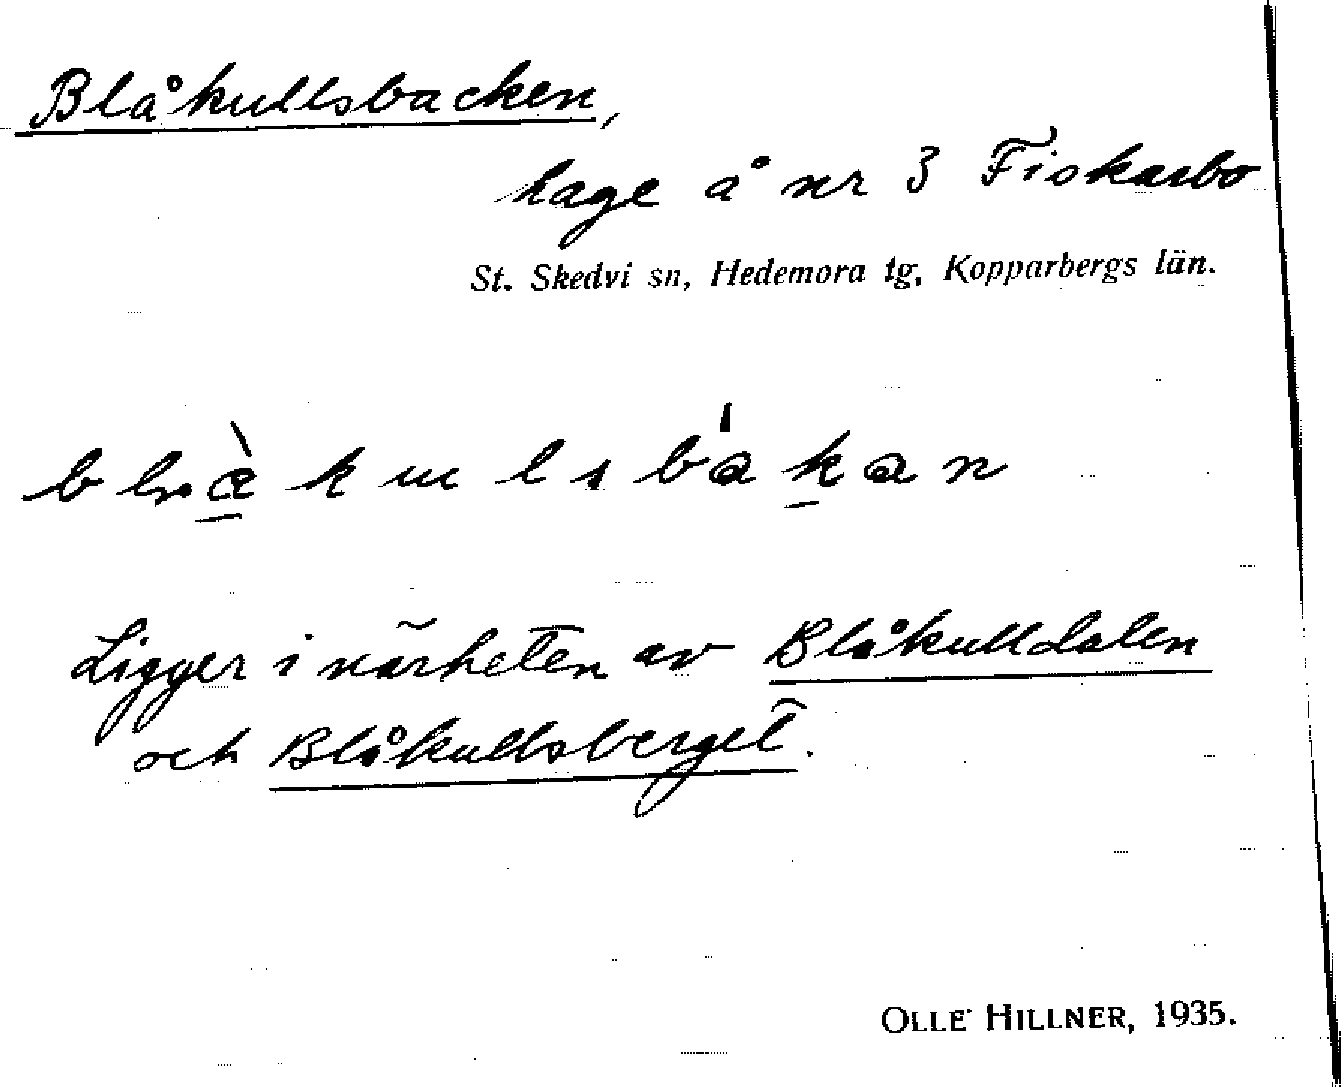 Blåkullsbacken,
hage å nr 3 Fiskarbo
St. Skedvi sn, Hedemora tg, Kopparbergs län.
Ligger i närheten av Blåkulldalen
och Blåkullsberget.
OLLE HILLNER, 1935.